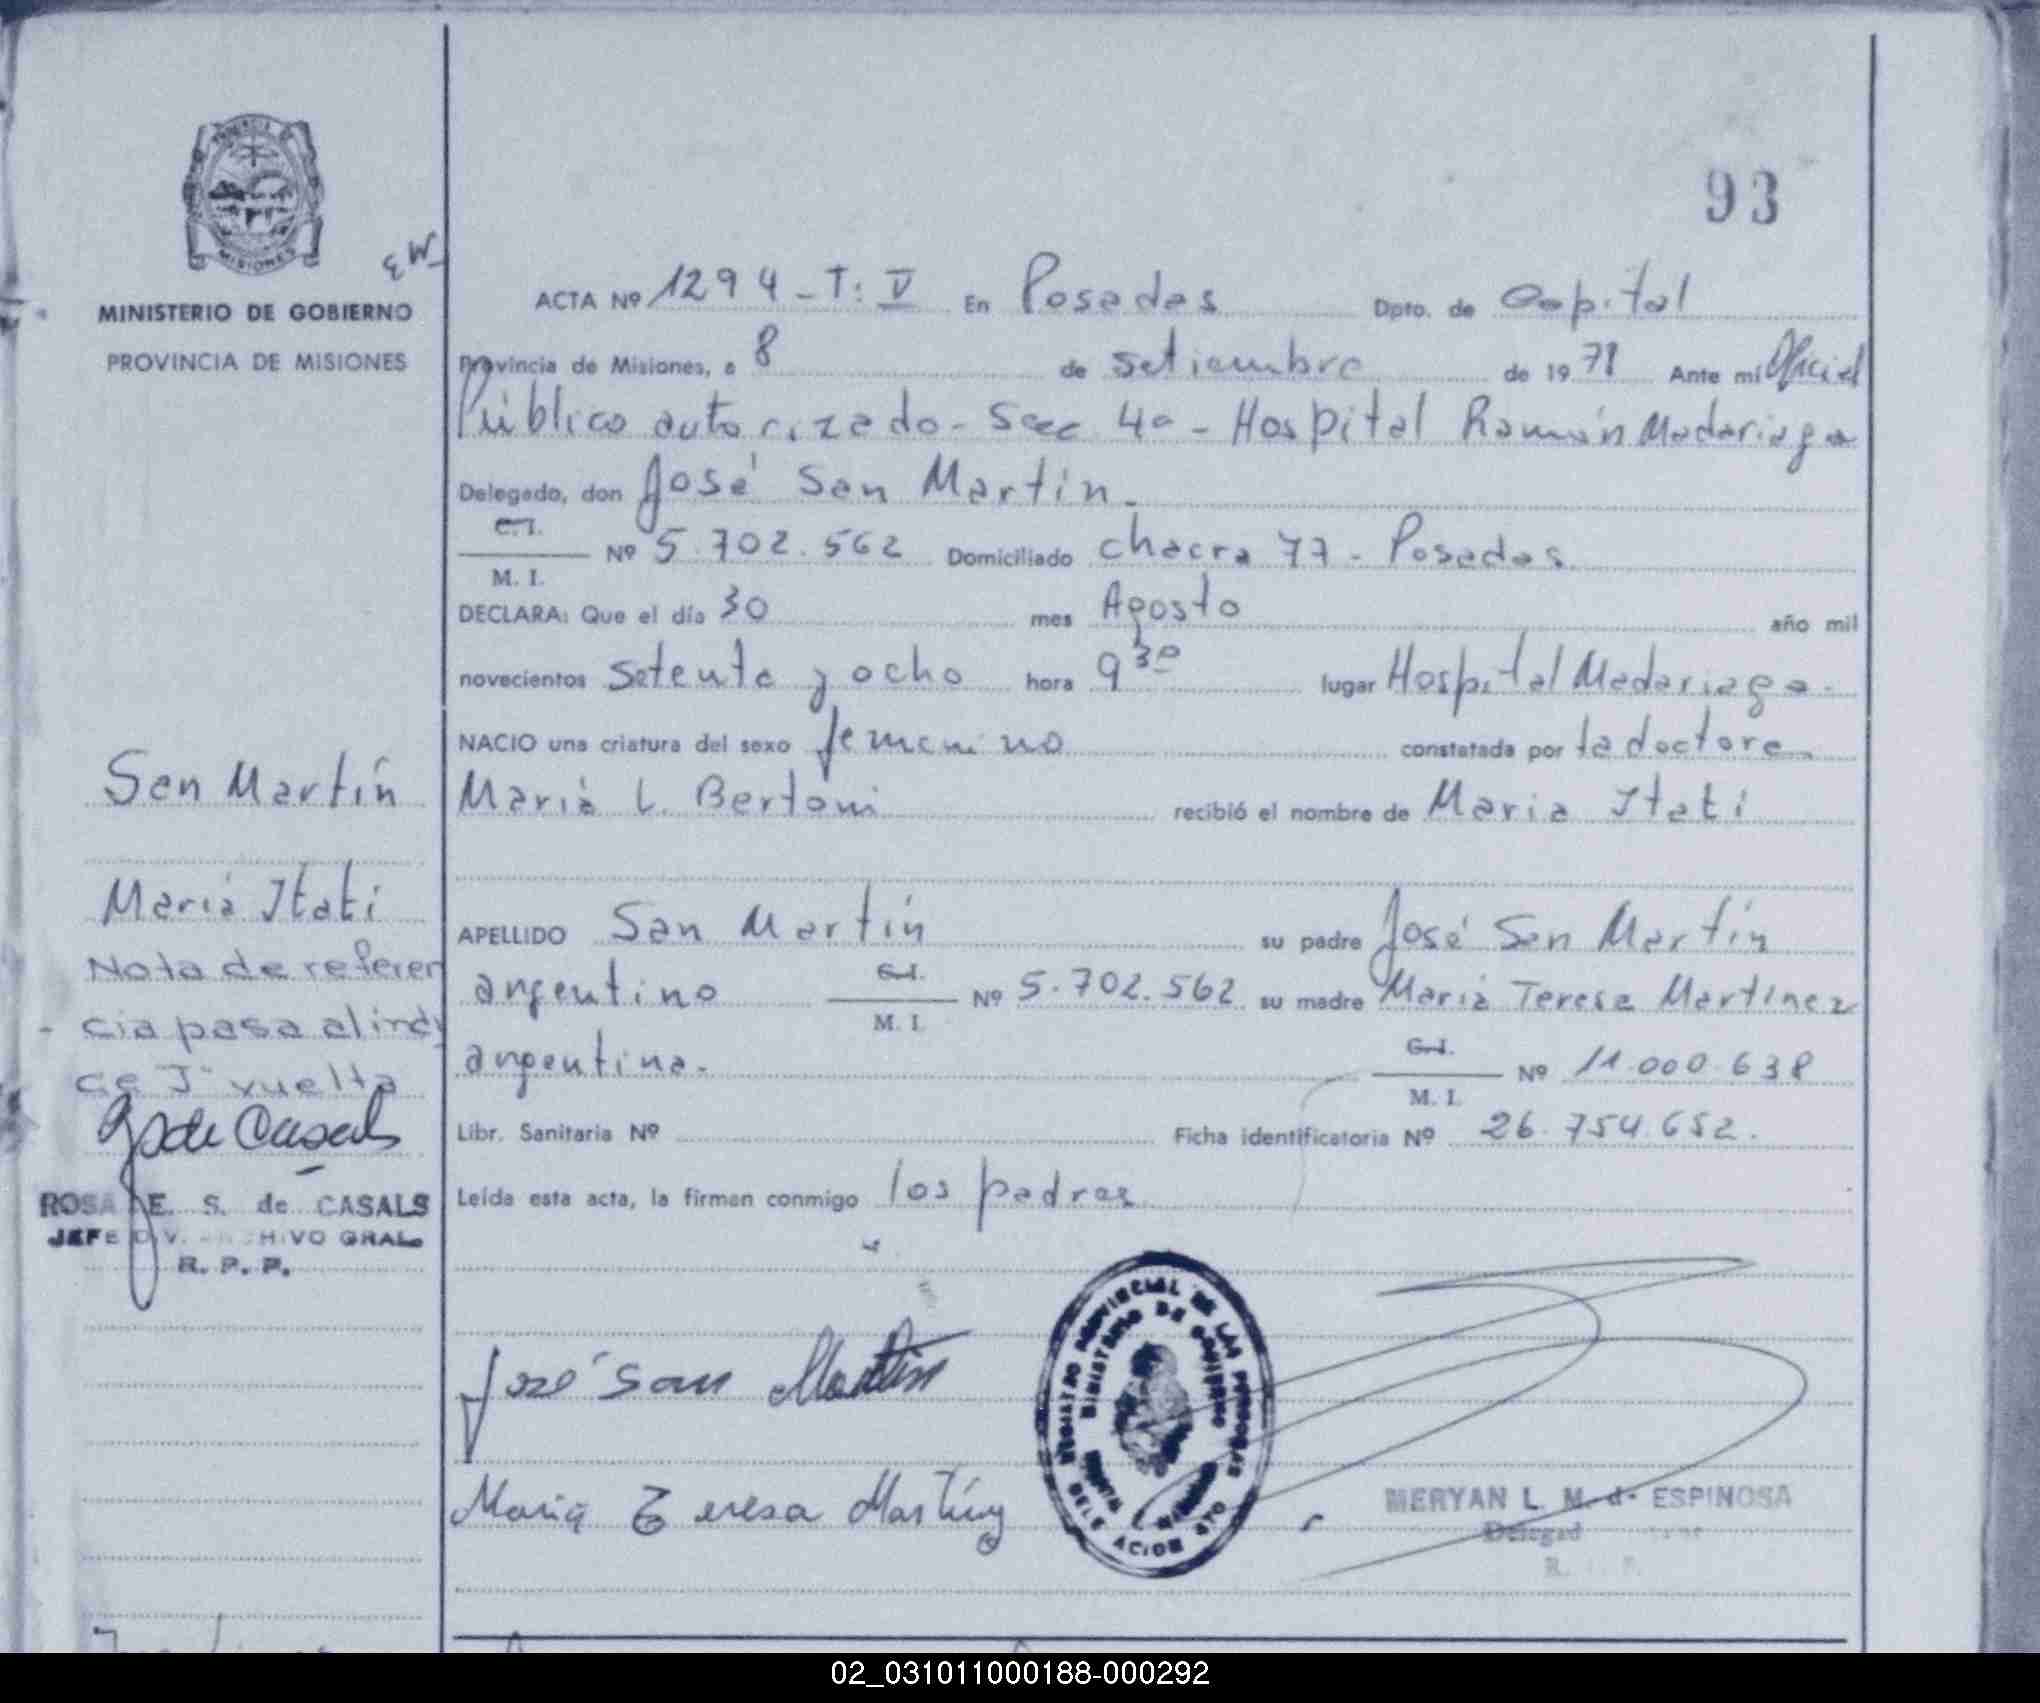 PROVINCIA DE
MISIONES
MINISTERIO DE GOBIERNO
PROVINCIA DE MISIONES
93
ACTA Nº 1294 - T: V En Posadas Dpto. de Capital
Provincia de Misiones, a 8 de setiembre de 1978 Ante mi Oficial
Público autorizado - Secc 4ª - Hospital Ramón Madariaga
Delegado, don José San Martín.
C.I.
M. I. Nº 5.702.562 Domiciliado chacra 77 - Posadas
DECLARA: Que el día 30 mes Agosto año mil
novecientos setenta y ocho hora 9 30 lugar Hospital Madariaga.
NACIO una criatura del sexo femenino constatada por la doctora
María L. Bertoni recibió el nombre de Maria Itati
APELLIDO San Martín su padre José San Martín
argentino C.I. M. I. Nº 5.702.562 su madre María Teresa Martinez
argentina. C.I. M. I. Nº 11.000.638
Libr. Sanitaria Nº Ficha identificatoria Nº 26.754.652.
Leída esta acta, la firman conmigo los padres
San Martín
María Itatí
Nota de referen
cia pasa al
de vuelta
de Casals
ROSA E. S. de CASALS
JEFE DIV. ARCHIVO GRAL.
R. P. P.
José San Martín
Maria Teresa Martinez
REGISTRO PROVINCIAL DE LAS PERSONAS
MINISTERIO DE GOBIERNO
DELEGACION
MERYAN L. M. de ESPINOSA
02_031011000188-000292